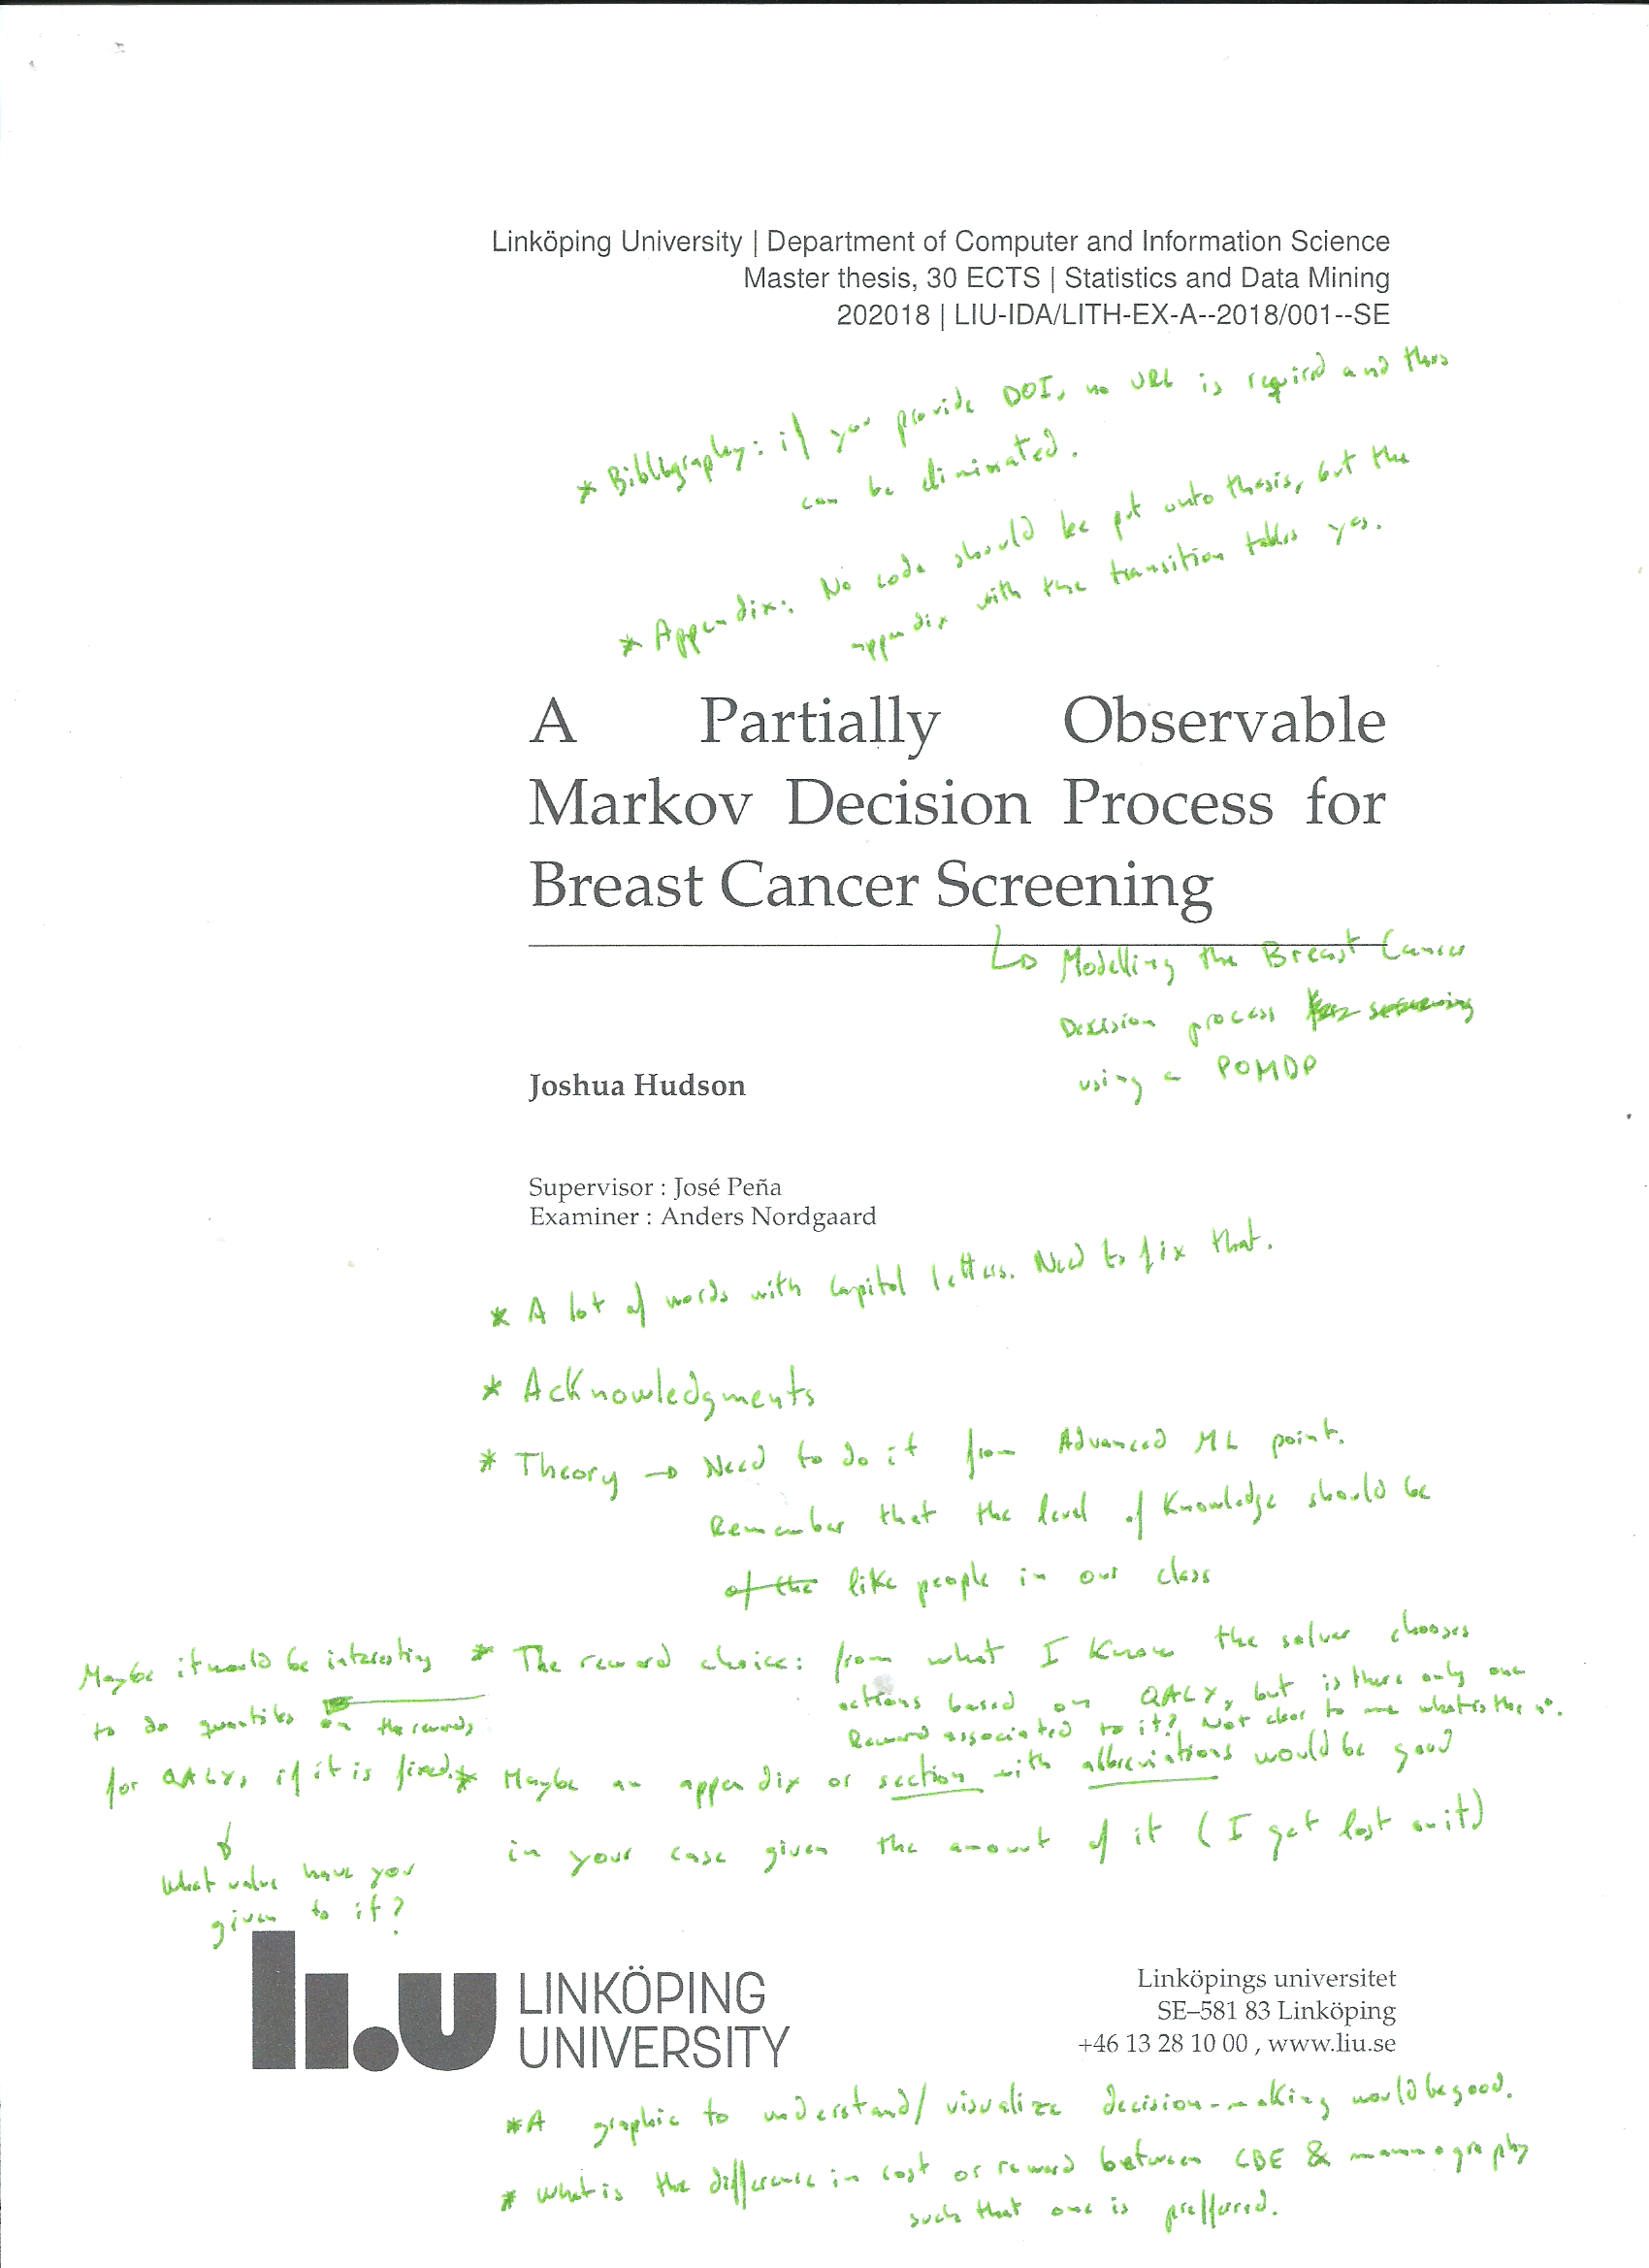 Linköping University | Department of Computer and Information Science
Master thesis, 30 ECTS | Statistics and Data Mining
202018 | LIU-IDA/LITH-EX-A--2018/001--SE
* Bibliography: if you provide DOI, no URL is required and thus
can be eliminated.
* Appendix: No code should be put onto thesis, but the
appendix with the transition tables yes.
A Partially Observable
Markov Decision Process for
Breast Cancer Screening
Modelling the Breast Cancer
Decision process
using a POMDP
Joshua Hudson
Supervisor : José Peña
Examiner : Anders Nordgaard
* A lot of words with capital letters. Need to fix that.
* Acknowledgments
* Theory → Need to do it from Advanced ML point.
Remember that the level of knowledge should be
of the like people in our class
* The reward choice: from what I know the solver chooses
actions based on QALY, but is there only one
Reward associated to it? Not clear to me what is the nº.
Maybe it would be interesting
to do quantiles on the rewards
for QALY, if it is fixed.
What value have you
given to it?
* Maybe an appendix or section with abbreviations would be good
in your case given the amount of it (I get lost on it)
LINKÖPING
UNIVERSITY
Linköpings universitet
SE–581 83 Linköping
+46 13 28 10 00 , www.liu.se
* A graphic to understand/visualize decision-making would be good.
* What is the difference in cost or reward between CBE & mammography
such that one is preffered.